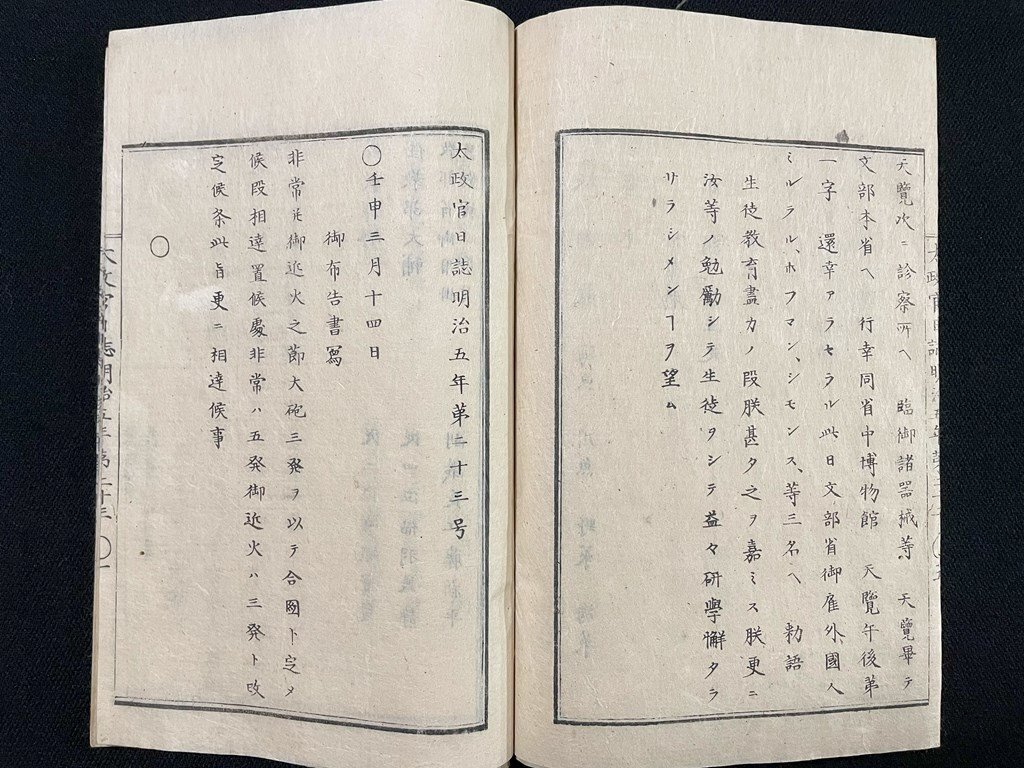 天覽次ニ診察所ヘ 臨御諸器械等 天覽畢テ
文部本省ヘ 行幸同省中博物館 天覽午後第
一字 還幸アラセラル此日文部省御雇外國人
ミルラル、ホフマン、シモンス、等三名ヘ 勅語
生徒教育盡力ノ段朕甚タ之ヲ嘉ミス朕更ニ
汝等ノ勉勵シテ生徒ヲシテ益々研學懈タラ
サラシメンヿヲ望ム
太政官日誌明治五年第二十三号
〇壬申三月十四日
御布告書寫
非常並御近火之節大砲三発ヲ以テ合圖ト定メ
候段相達置候處非常ハ五発御近火ハ三発ト改
定候条此旨更ニ相達候事
〇
太政官日誌明治五年第二十三 〇一